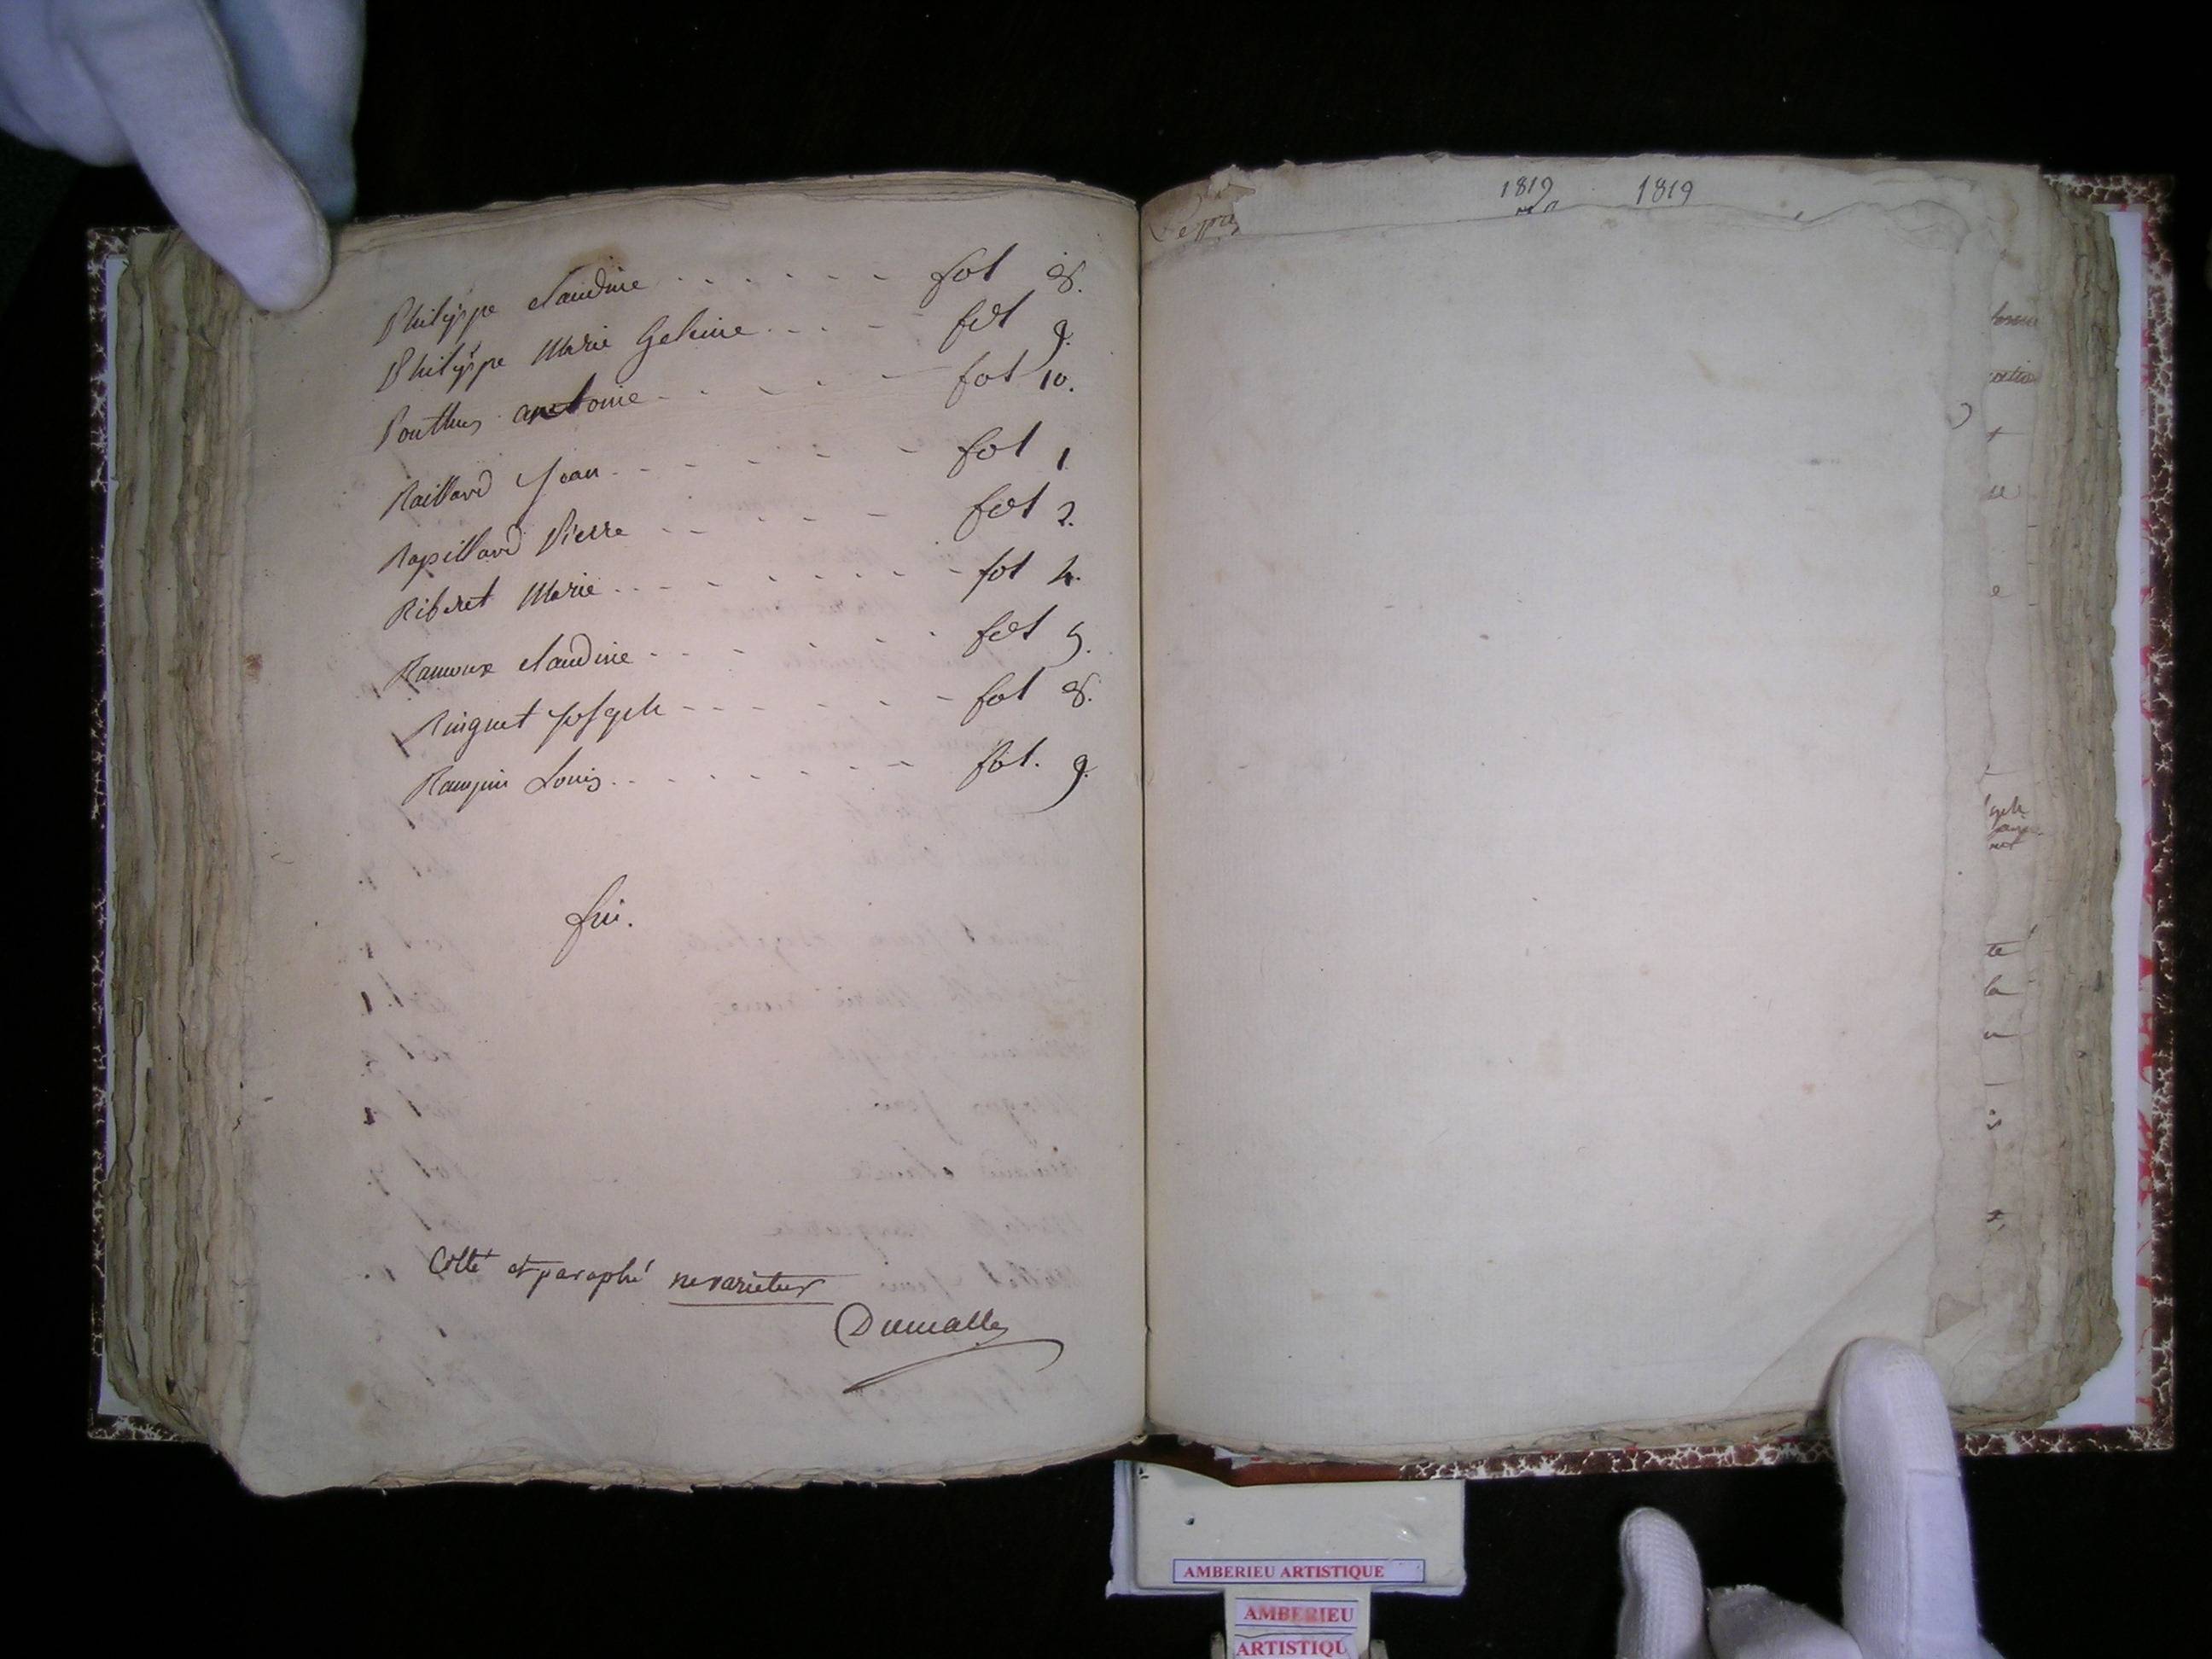 Philippe Claudine . . . . . . fol 8.
Philippe Marie Geleine . . . . fol 9.
Ponthus antoine . . . . . fol 10.
Raillard Jean . . . . . . fol 1
Rapillard Pierre . . . . . fol 2.
Riberet Marie . . . . . . . fol 4.
Ramoux Claudine . . . . . fol 5.
Ringuet Joseph . . . . . . fol 8.
Rampin Louis . . . . . . fol. 9.
fin.
Cotté et paraphé ne varietur
Dumalle
1819 1819
AMBERIEU ARTISTIQUE
AMBERIEU
ARTISTIQU